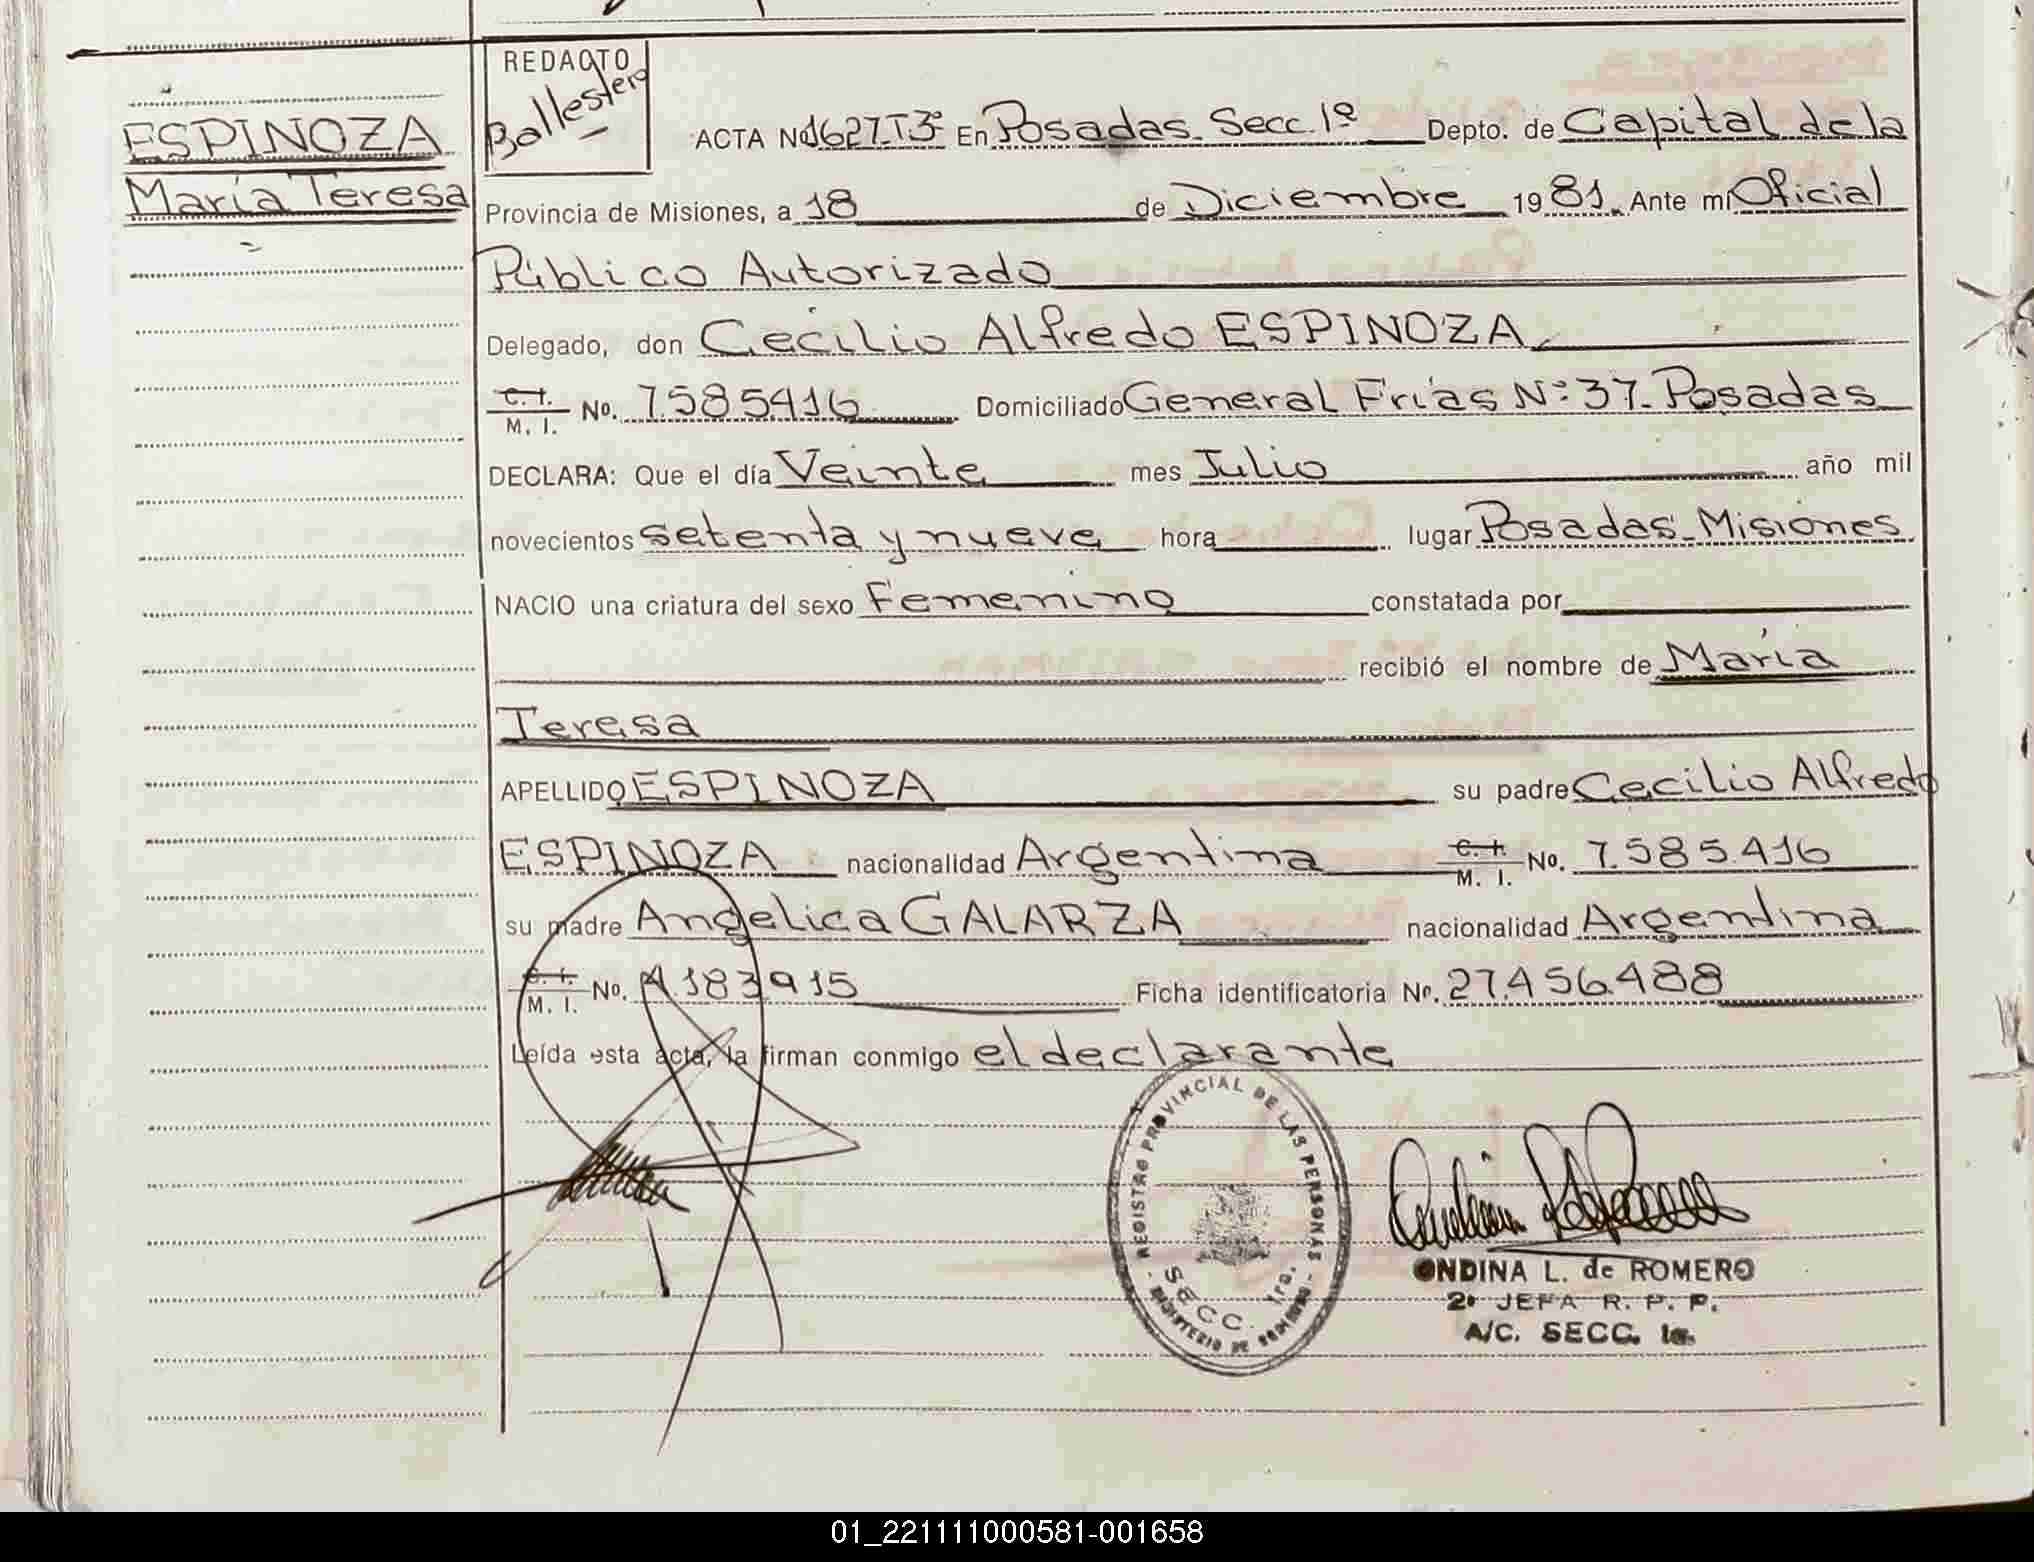 REDACTO
Ballestero
ESPINOZA
María Teresa
ACTA Nº 1627-T3º En Posadas Secc. 1º Depto. de Capital de la
Provincia de Misiones, a 18 de Diciembre 1981. Ante mi Oficial
Público Autorizado
Delegado, don Cecilio Alfredo ESPINOZA
C. I. M. I. No. 7.585.416 Domiciliado General Frías Nº 37- Posadas
DECLARA: Que el día Veinte mes Julio año mil
novecientos setenta y nueve hora lugar Posadas- Misiones
NACIO una criatura del sexo Femenino constatada por
recibió el nombre de María
Teresa
APELLIDO ESPINOZA su padre Cecilio Alfredo
ESPINOZA nacionalidad Argentina C. I. M. I. No. 7.585.416
su madre Angelica GALARZA nacionalidad Argentina
C. I. M. I. No. 4.183.915 Ficha identificatoria No. 27.456.488
Leída esta acta, la firman conmigo el declarante
REGISTRO PROVINCIAL DE LAS PERSONAS
SECC. 1ra.
MINISTERIO DE GOBIERNO
ONDINA L. de ROMERO
2ª JEFA R. P. P.
A/C. SECC. 1a.
01_221111000581-001658